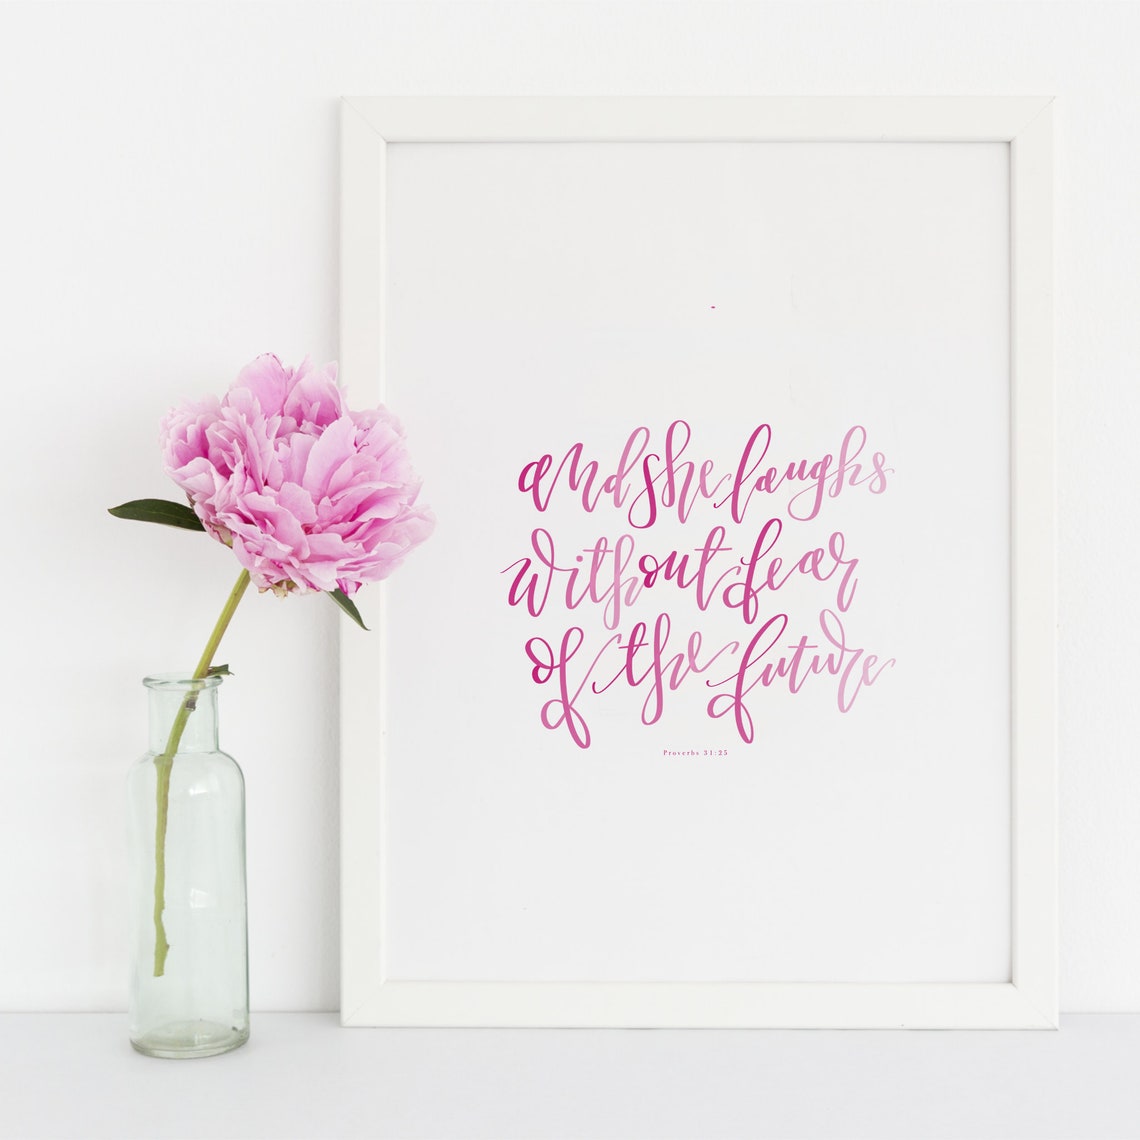 and she laughs
without fear
of the future
Proverbs 31:25